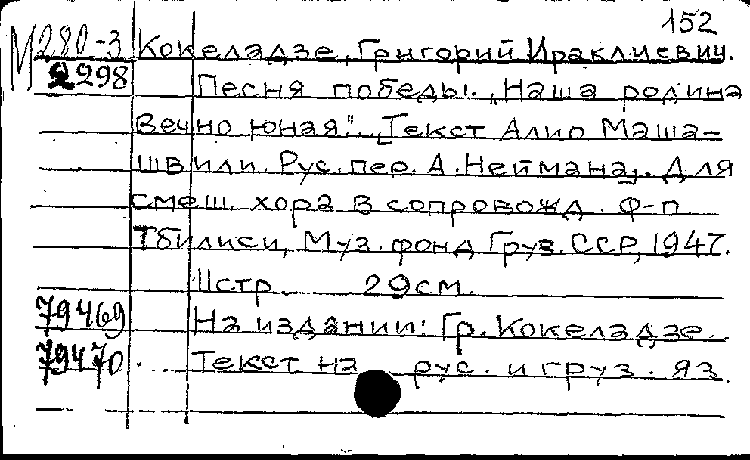 152
М 280-3 Кокеладзе, Григорий Ираклиевич.
2298 Песня победы. „Наша родина
вечно юная". [Текст Алио Маша-
швили. Рус. пер. А. Неймана]. Для
смеш. хора в сопровожд. ф-п
Тбилиси, Муз. фонд Груз. ССР, 1947.
11стр. 29см.
79469 На издании: Гр. Кокеладзе.
79470 Текст на рус. и груз. яз.